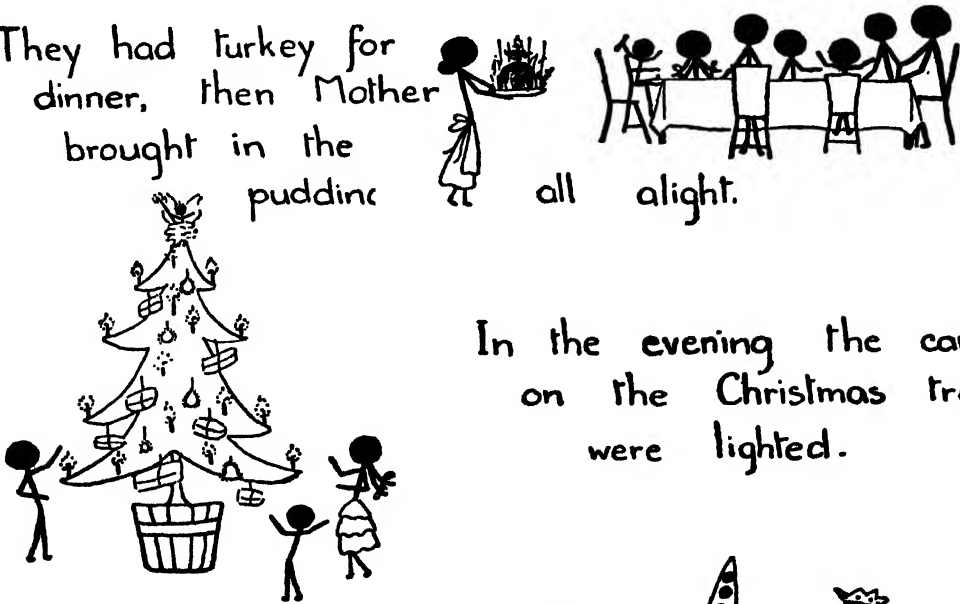 They had turkey for
dinner, then Mother
brought in the
puddinc all alight.
In the evening the ca
on the Christmas tr
were lighted.